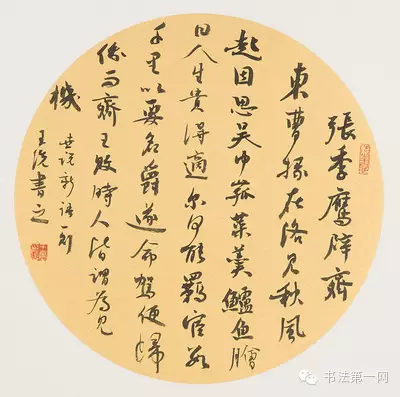 張季鷹辟齊
東曹掾在洛見秋風
起因思吳中菰菜羹鱸魚膾
曰人生貴得適尔何能羈宦數
千里以要名爵遂命駕便歸
俄而齊王敗時人皆謂為見
機
世說新語一則
王書之
书法第一网